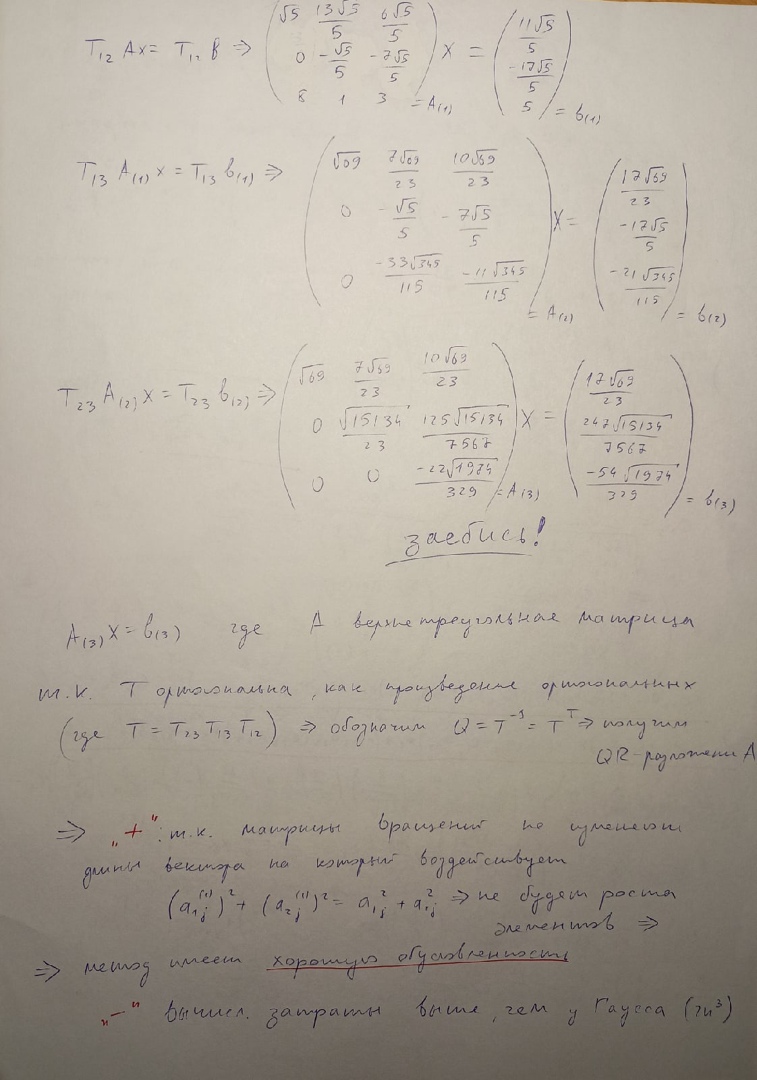 T₁₂ Ax = T₁₂ b ⇒ ( √5 13√5/5 6√5/5 ; 0 -√5/5 -7√5/5 ; 8 1 3 ) = A₍₁₎ x = ( 11√5/5 ; -17√5/5 ; 5 ) = b₍₁₎
T₁₃ A₍₁₎ x = T₁₃ b₍₁₎ ⇒ ( √69 7√69/23 10√69/23 ; 0 -√5/5 -7√5/5 ; 0 -33√345/115 -11√345/115 ) = A₍₂₎ x = ( 17√69/23 ; -17√5/5 ; -21√345/115 ) = b₍₂₎
T₂₃ A₍₂₎ x = T₂₃ b₍₂₎ ⇒ ( √69 7√69/23 10√69/23 ; 0 √15134/23 125√15134/7567 ; 0 0 -22√1974/329 ) = A₍₃₎ x = ( 17√69/23 ; 247√15134/7567 ; -54√1974/329 ) = b₍₃₎
заебись!
A₍₃₎ x = b₍₃₎ где A верхнетреугольная матрица
т.к. T ортогональна, как произведение ортогональных
(где T = T₂₃ T₁₃ T₁₂) ⇒ обозначим Q = T⁻¹ = Tᵀ ⇒ получим
QR-разложени A
⇒ "+": т.к. матрицы вращений не изменяют
длины вектора на который воздействует
(a₁ⱼ⁽¹⁾)² + (a₂ⱼ⁽¹⁾)² = a₁ⱼ² + a₁ⱼ² ⇒ не будет роста
элементов ⇒
⇒ метод имеет хорошую обусловленность
"–" вычисл. затраты выше, чем у Гаусса (2n³)